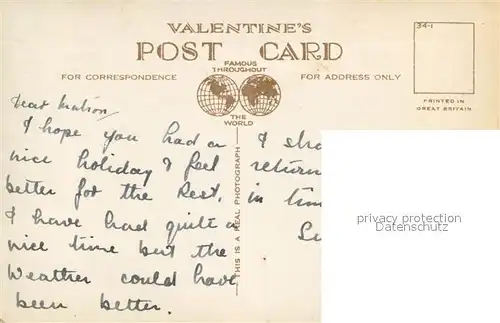 VALENTINE'S
POST CARD
FAMOUS THROUGHOUT
THE WORLD
FOR CORRESPONDENCE
FOR ADDRESS ONLY
34-1
PRINTED IN
GREAT BRITAIN
THIS IS A REAL PHOTOGRAPH
Dear Matron,
I hope you had a
nice holiday & feel
better for the Rest.
I have had quite a
nice time but the
Weather could have
been better.
I
return
in
privacy protection
Datenschutz